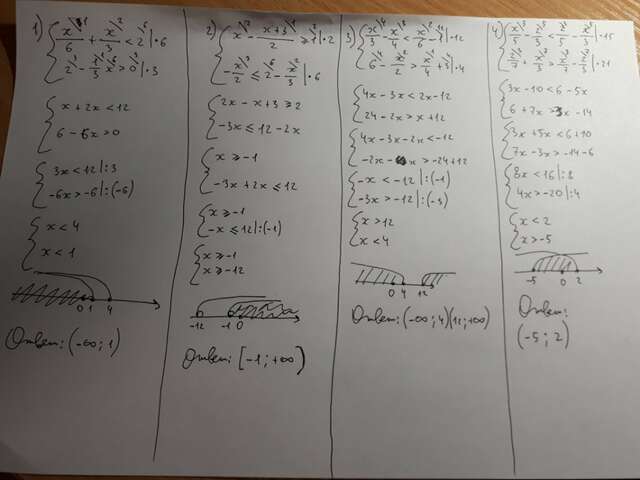 1) { x/6 + x/3 < 2 |·6
2 - x/3 x > 0 |·3
{ x + 2x < 12
6 - 6x > 0
{ 3x < 12 |:3
-6x > -6 |:(-6)
{ x < 4
x < 1
0 1 4
Ответ: (-∞; 1)
2) { x - x+3/2 ≥ 1 |·2
-x/2 ≤ 2 - x/3 |·6
{ 2x - x + 3 ≥ 2
-3x ≤ 12 - 2x
{ x ≥ -1
-3x + 2x ≤ 12
{ x ≥ -1
-x ≤ 12 |:(-1)
{ x ≥ -1
x ≥ -12
-12 -1 0
Ответ: [-1; +∞)
3) { x/3 - x/4 < x/6 - 1 |·12
6 - x/2 > x/4 + 3 |·4
{ 4x - 3x < 2x - 12
24 - 2x > x + 12
{ 4x - 3x - 2x < -12
-2x - x > -24 + 12
{ -x < -12 |:(-1)
-3x > -12 |:(-3)
{ x > 12
x < 4
0 4 12
Ответ: (-∞; 4)(12; +∞)
4) { x/5 - 2/3 < 2/5 - x/3 |·15
2/7 + x/3 > x/7 - 2/3 |·21
{ 3x - 10 < 6 - 5x
6 + 7x > 3x - 14
{ 3x + 5x < 6 + 10
7x - 3x > -14 - 6
{ 8x < 16 |:8
4x > -20 |:4
{ x < 2
x > -5
-5 0 2
Ответ:
(-5; 2)